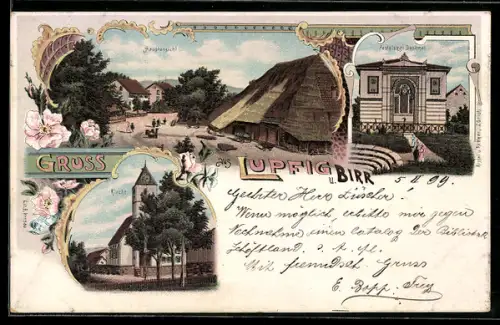 Hauptansicht
Pestalozzi Denkmal
GRUSS
aus LUPFIG
u. BIRR
Kirche
5 II 99.
Geehrter Herr Lüscher!
Wenn möglich, erbitte mir gegen
Nachnahme einen Catalog der Bibliothek
Schöftland. s. Z. pl.
Mit freundsch. Gruss
E. Bopp-Frey